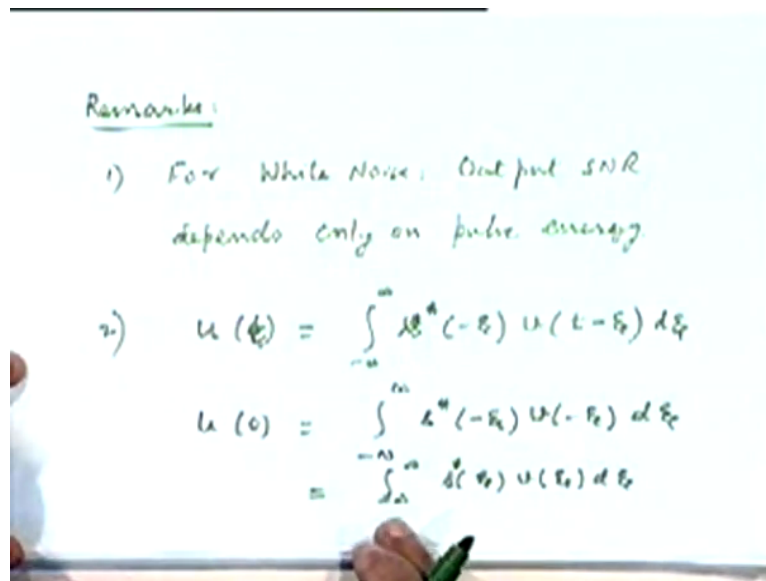 Remarks:
1) For White Noise: Output SNR
depends only on pulse energy.
2) u(t) = ∫_{-∞}^{∞} s*(-ξ) v(t-ξ) dξ
u(0) = ∫_{-∞}^{∞} s*(-ξ) v(-ξ) dξ
= ∫_{-∞}^{∞} s*(ξ) v(ξ) dξ